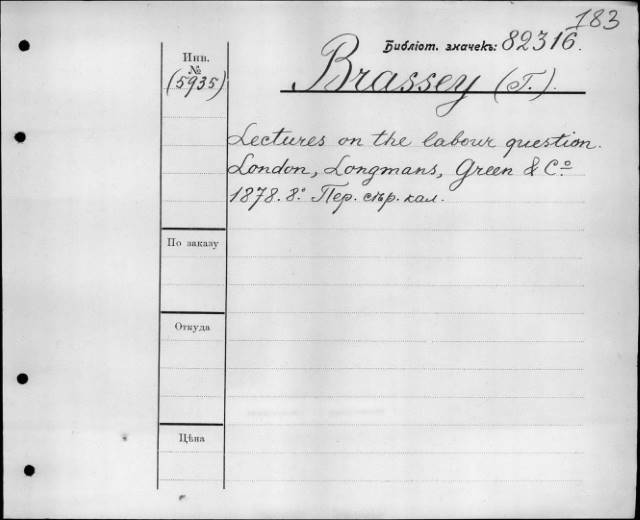 183
Библіот. значекъ: 82316.
Инв.
№
(5935)
Brassey (T.).
Lectures on the labour question.
London, Longmans, Green & Cº
1878. 8.º Пер. сѣр. кал.
По заказу
Откуда
Цѣна